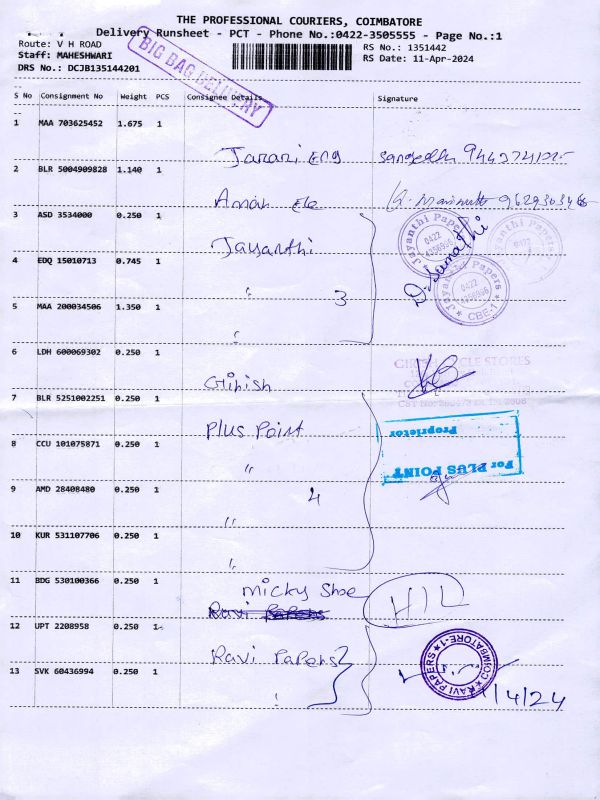 THE PROFESSIONAL COURIERS, COIMBATORE
Delivery Runsheet - PCT - Phone No.:0422-3505555 - Page No.:1
Route: V H ROAD
RS No.: 1351442
Staff: MAHESHWARI
RS Date: 11-Apr-2024
DRS No.: DCJB135144201
BIG BAG DELIVERY
S No Consignment No Weight PCS Consignee Details Signature
1 MAA 703625452 1.675 1
2 BLR 5004909828 1.140 1
3 ASD 3534000 0.250 1
Jayanthi
Jayanthi Papers
0422
CBE-1
4 EDQ 15010713 0.745 1
" 3
5 MAA 200034506 1.350 1
"
6 LDH 600069302 0.250 1
Girish
7 BLR 5251002251 0.250 1
Plus Point
For PLUS POINT
Proprietor
8 CCU 101075871 0.250 1
"
9 AMD 28408480 0.250 1
4
"
10 KUR 531107706 0.250 1
"
11 BDG 530100366 0.250 1
Micky Shoe
HIL
Ravi Papers
12 UPT 2208958 0.250 1
Ravi Papers
RAVI PAPERS
COIMBATORE-1
13 SVK 60436994 0.250 1
/4/24